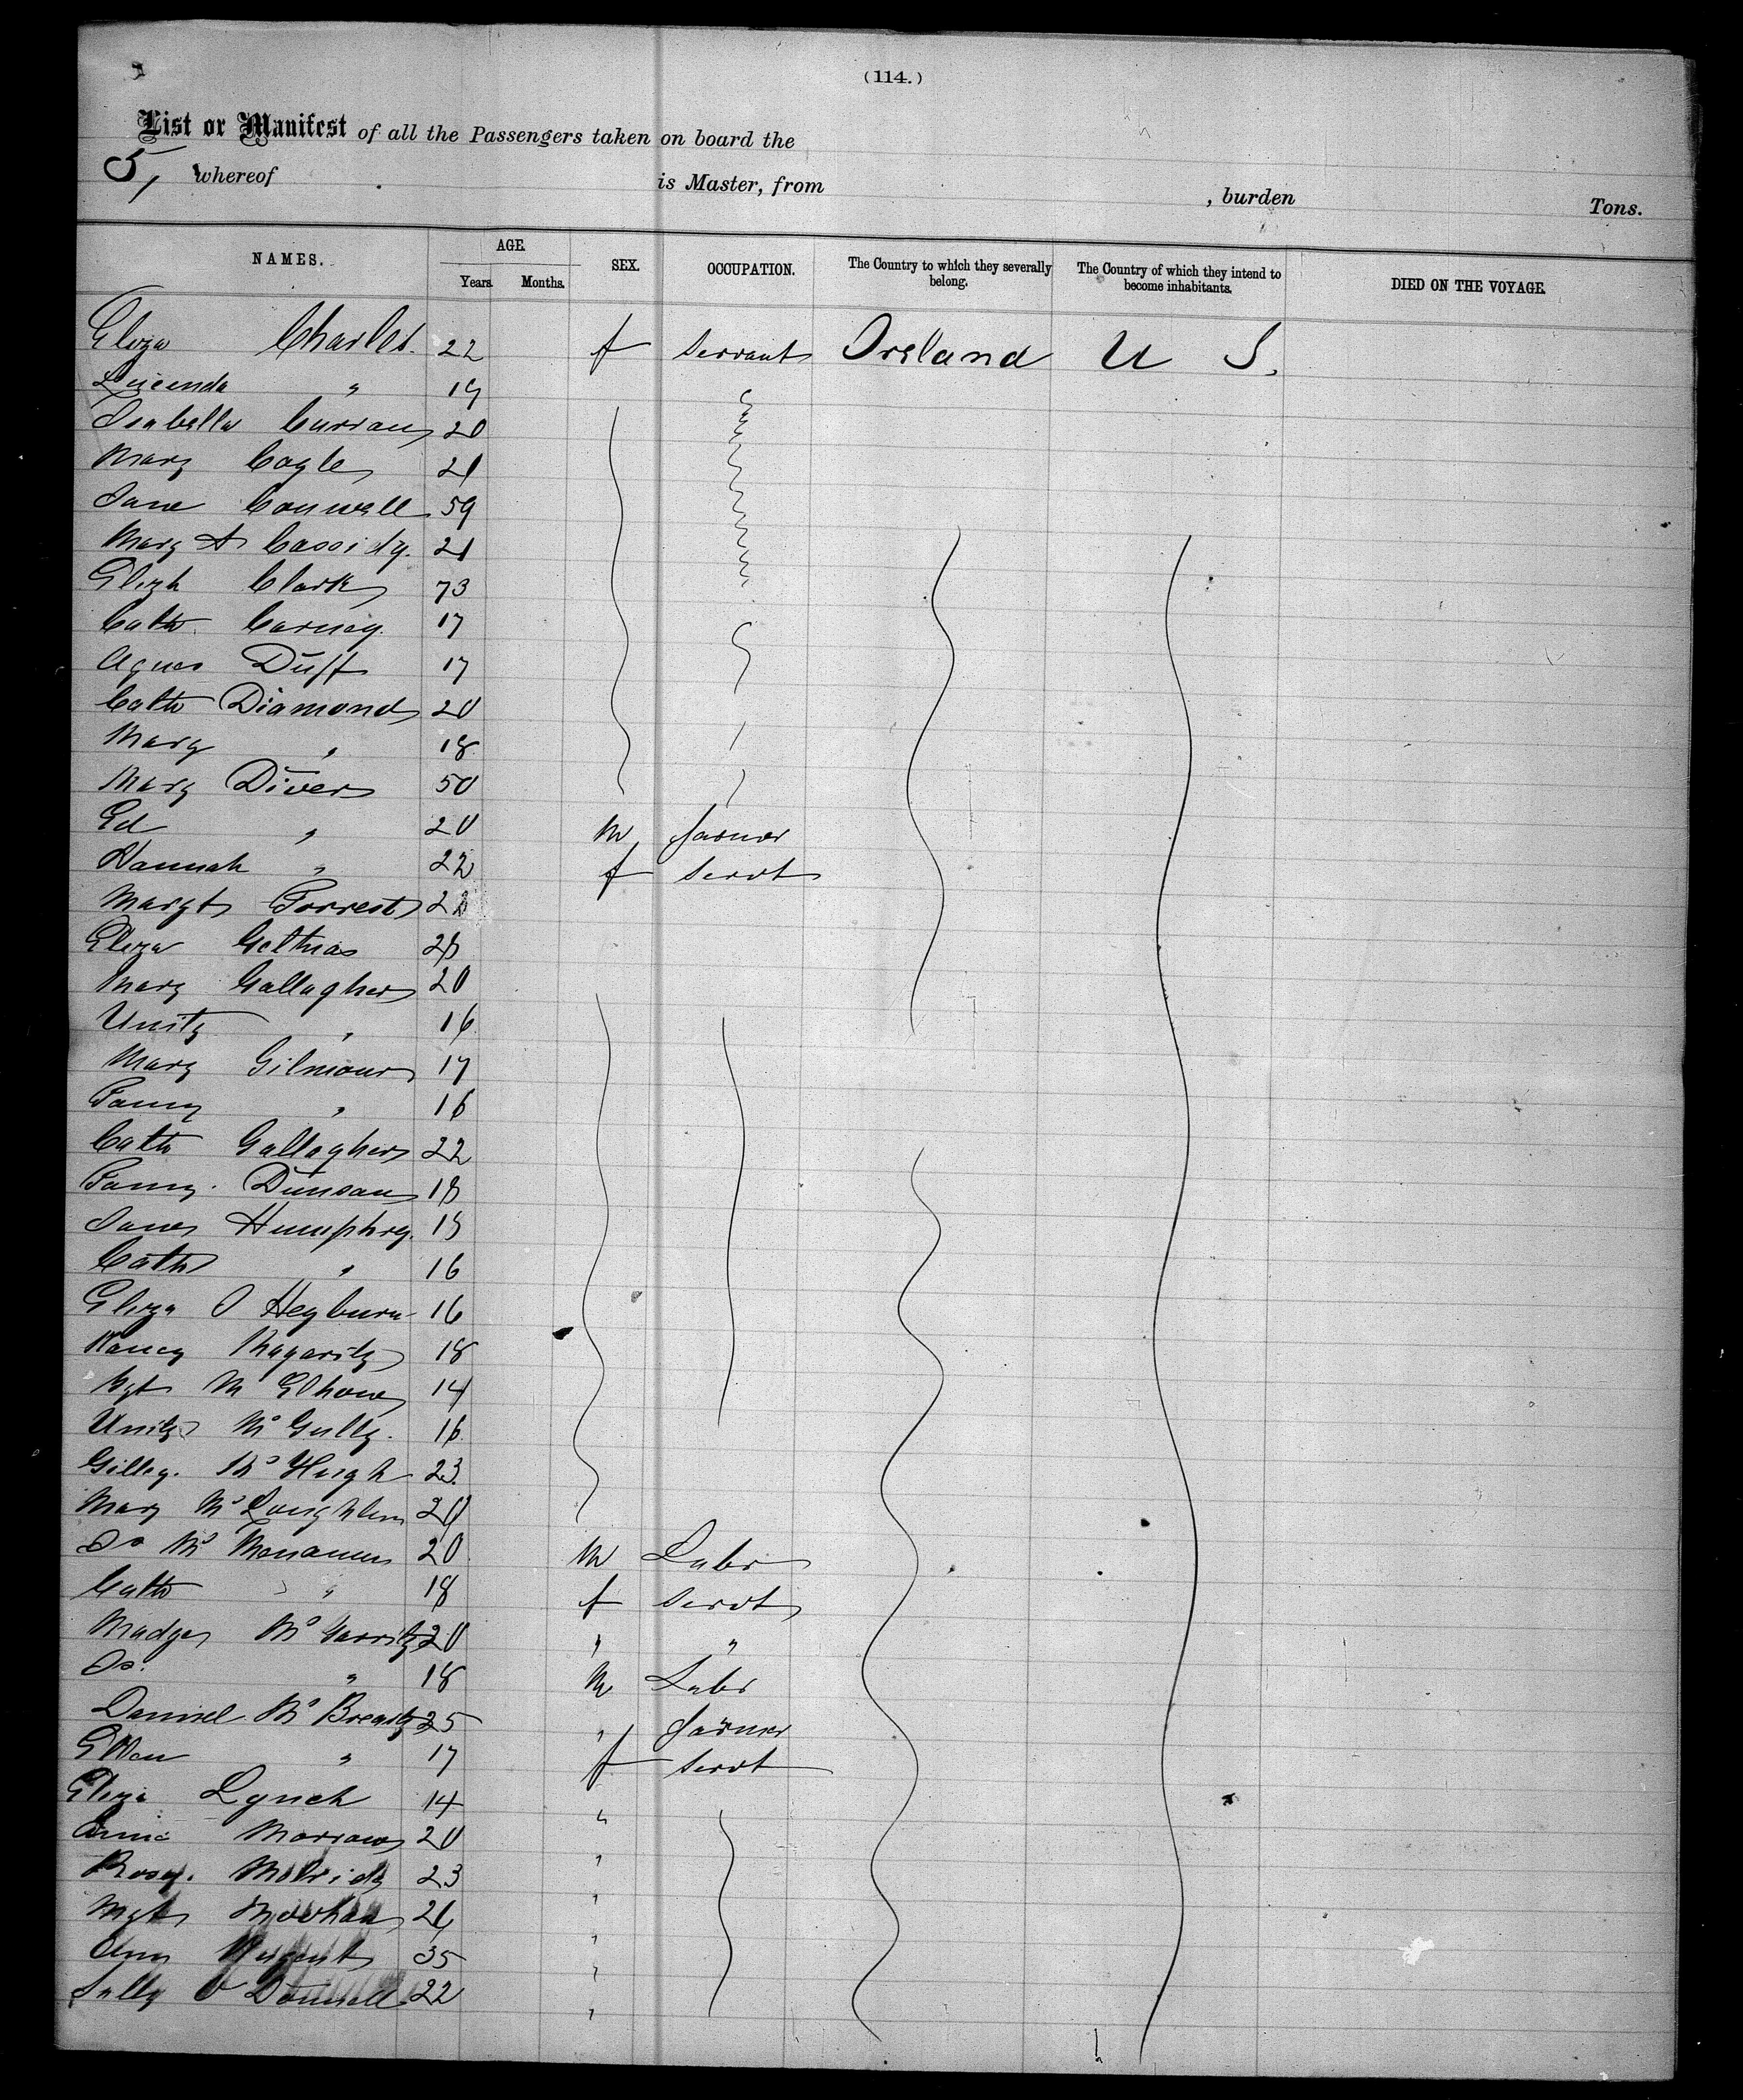 (114.)
List or Manifest of all the Passengers taken on board the
5, whereof is Master, from , burden Tons.
NAMES. AGE. Years. Months. SEX. OCCUPATION. The Country to which they severally belong. The Country of which they intend to become inhabitants. DIED ON THE VOYAGE.
Eliza Charles. 22 f Servant Ireland U S.
Lucinda " 19
Isabella Curran 20
Mary Cogle 21
Jane Conwell 59
Mary A Cassidy. 21
Elizh Clark 73
Cath Carney. 17
Agnes Duff 17
Cath Diamond 20
Mary " 18
Mary Diver 50
Ed " 20 M farmer
Hannah " 22 f Servt
Margt Forrest
Eliza
Mary Gallagher 20
Unity " 16
Mary Gilmour 17
Fanny " 16
Cath Gallagher 22
Fanny. Duncan 18
Jane Humphrey.
Cath " 16
Eliza O Heyburn 16
Nancy Magarity 18
Mgt Mc Elhone 14
Unity Mc Gully. 16
Mc Hugh 23
Mary Mc Loughlin 20
Jo Mc Menamin 20 M Labr
Cath " 18 f Servt
Madge Mc Garrity 20 " "
Jo. " 18 M Labr
Daniel Mc Brearty 25 " farmer
Ellen " 17 f Servt
Eliza Lynch 14 "
Annie Morrow 20 "
Rosey. McBride 23 "
Mgt Meehan 21 "
Ann Nugent 35 "
Sally O Donnell 22 "